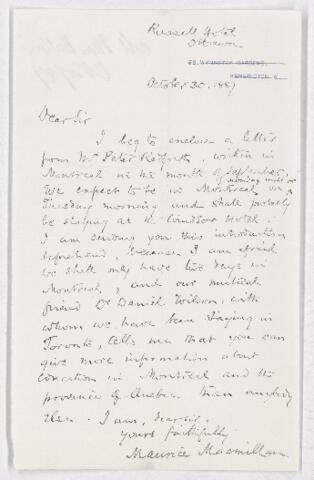 Russell Hotel
Ottawa
GARDENS,
KENSINGTON
October 30. 1887
Dear Sir
I beg to enclose a letter
from Mr Peter Redpath, written in
Montreal in the month of September.
We expect to be in Montreal on Monday night or
Tuesday morning and shall probably
be staying at the Windsor Hotel.
I am sending you this introduction
beforehand, because I am afraid
we shall only have two days in
Montreal; and our mutual
friend Dr Daniel Wilson, with
whom we have been staying in
Toronto, tells me that you can
give more information about
education in Montreal and the
province of Quebec than anybody
else. I am, dear sir,
yours faithfully
Maurice Macmillan